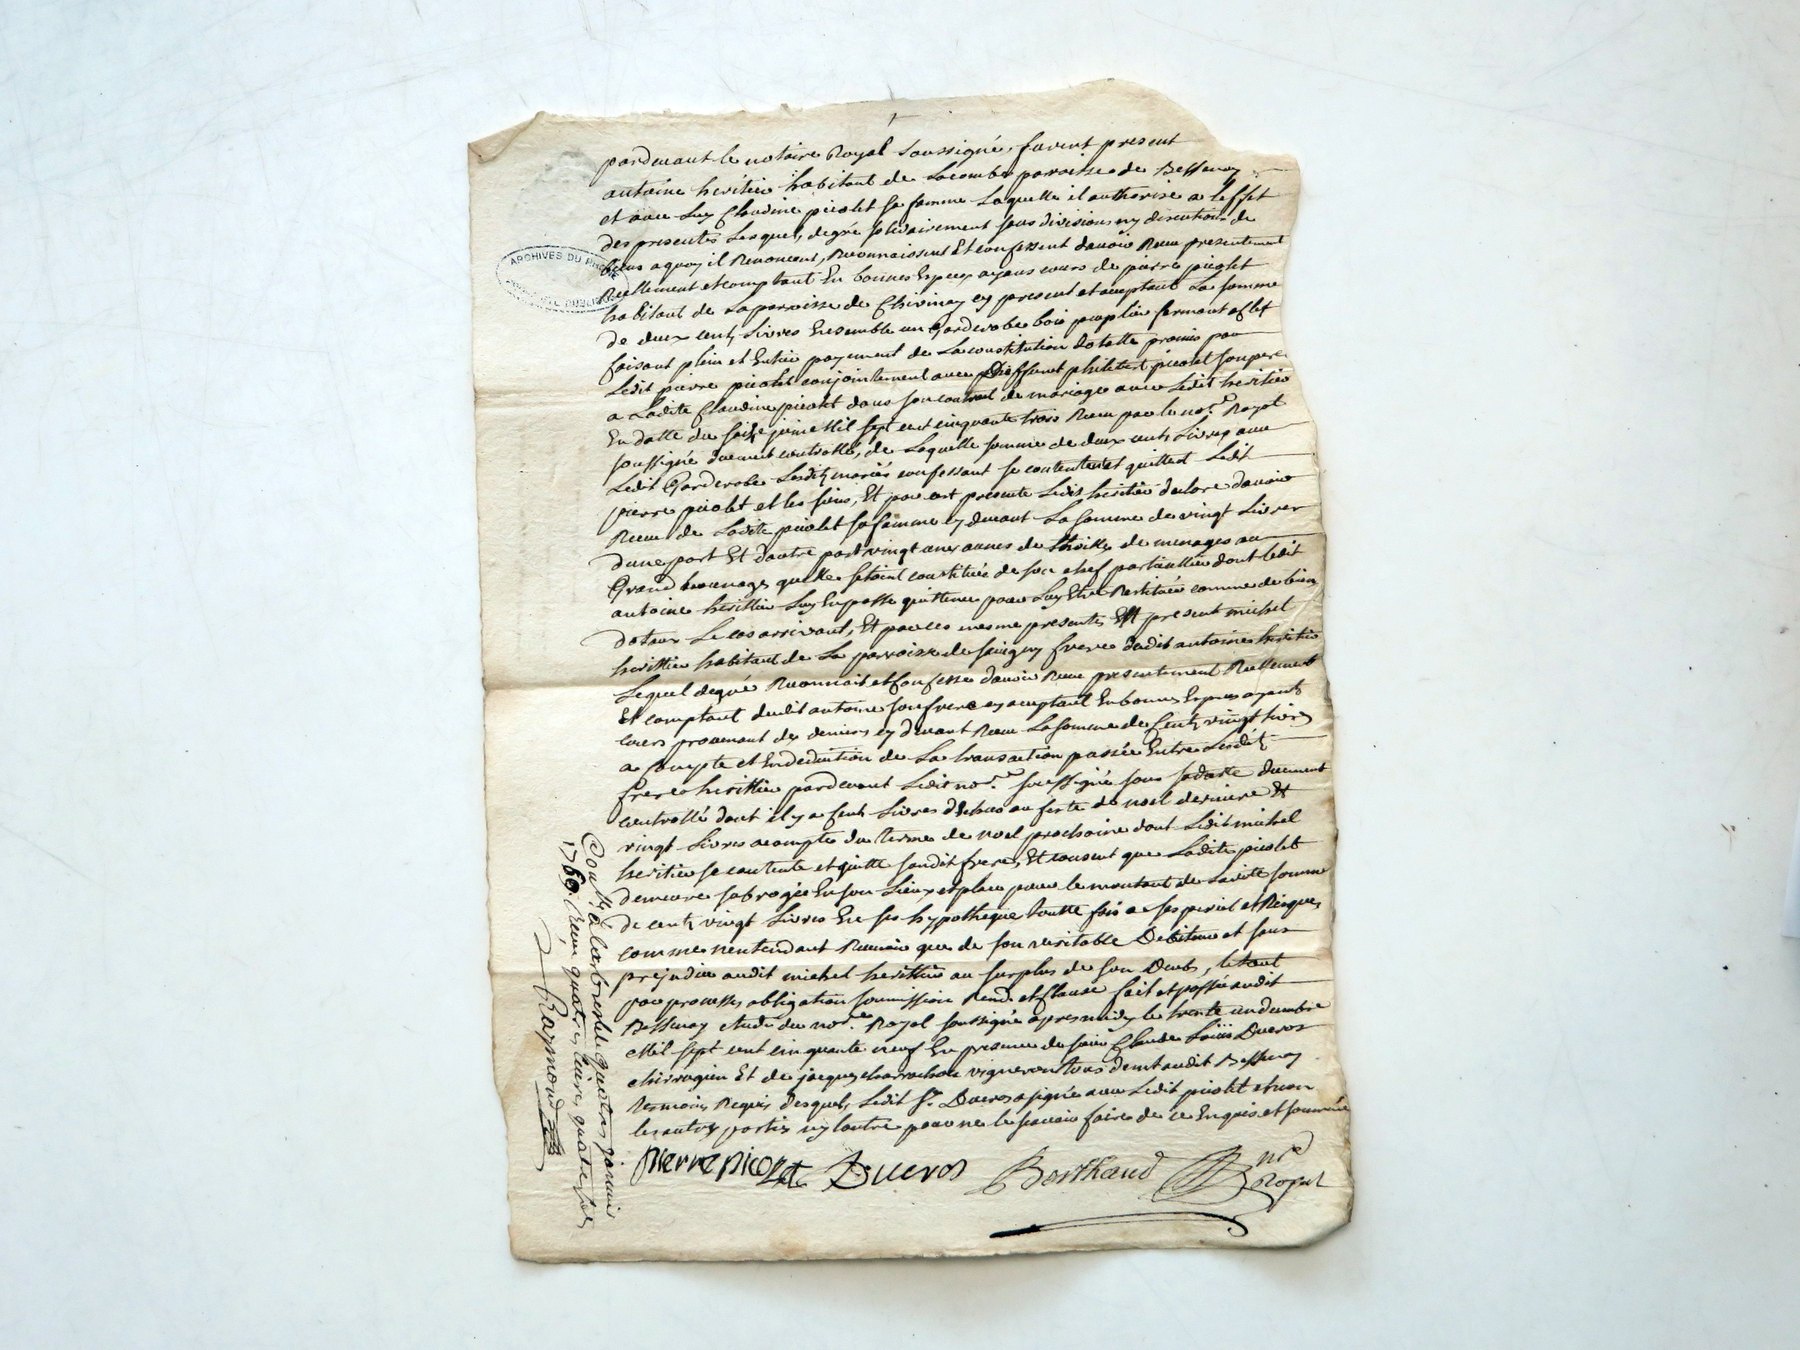 pardevant le notaire Royal soussigné, furent present
antoine heritier habitant de Lacombe paroisse de Bessenay
et avec Luy Claudine picolet sa femme Laquelle il authorise a leffet
des presentes Lesquels degré solidairement sans division ny discution de
biens a quoy il Renoncent, Reconnaissent Et confessent davoir Receu presentement
Reellement et comptant En bonnes Especes ayans cours de pierre picolet
habitant de La paroisse de Chivinay cy present et acceptant La somme
de deux cents Livres Ensemble un Garderobe bois peuplier fermant a clef
faisant plein et Entier payement de La constitution dotalle promis par
Ledit pierre picolet conjointement avec Deffunt philibert picolet son pere
a Ladite Claudine picolet dans son contract de mariage avec Ledit heritier
En datte du seize juin Mil sept cent cinquante trois Receu par le nore Royal
soussigné duement controllé, de Laquelle somme de deux cents Livres avec
Ledit Garderobe Lesdits mariés confessant se contentent et quittent Ledit
pierre picolet et les siens, Et par cest presente Ledit heritier declare davoir
Receu de Ladite picolet sa femme cy devant La somme de vingt Livres
dune part Et dautre part vingt aunes de thoille de menages au
Grand aunage quelle setoint constituée de son chef particullier dont ledit
antoine heritier Luy En passe quittance pour Luy Etre Restituée comme de bien
dotaux Le cas arrivant, Et par ces mesme presentes Est present michel
heritier habitant de La paroisse de savigny frere dudit antoine heritier
Lequel degré Reconnait et Confesse davoir Receu presentement Reellement
Et comptant dudit antoine son frere cy acceptant En bonnes Especes ayant
cours provenant des deniers cy devant Receu La somme de Cents vingt Livres
a Compte et En deduction de La transaction passée Entre Lesdits
frere heritier pardevant Ledit nore soussigné sous sa datte duement
controllé dont il y a Cent Livres dEchus au feste de noel derniere Et
vingt Livres acompte du terme de noel prochaine dont Ledit michel
heritier se contente et quitte sondit frere, Et consent que Ladite picolet
demeure subrogée En son Lieux et place pour le montant de Ladite somme
de cents vingt Livres En ses hypotheque toutte fois a ses peril et Risques
comme nentendant Recevoir que de son veritable Debiteur et sans
prejudice audit michel heritier au surplus de son Deub, le tout
par promesses obligation soumission Rend. et Clause fait et passé audit
Bessenay etude du nore Royal soussigné apres midy le trente un decembre
Mil sept cent cinquante neuf En presence de sieur Claude Loüis Ducros
chirurgien Et de jacques vigneron tous demt audit Bessenay
tesmoins Requis desquels Ledit Sr Ducros a signé avec Ledit picolet et non
les autres parties ny lautre pour ne le scavoir faire de ce Enquis et sommés
pierre picolet Ducros Berthaud nre
Royal
Contlé à Larbresle le quatre janvier
1760 Receu quatre livres, quatre sols
Raymond
ARCHIVES DU RHÔNE